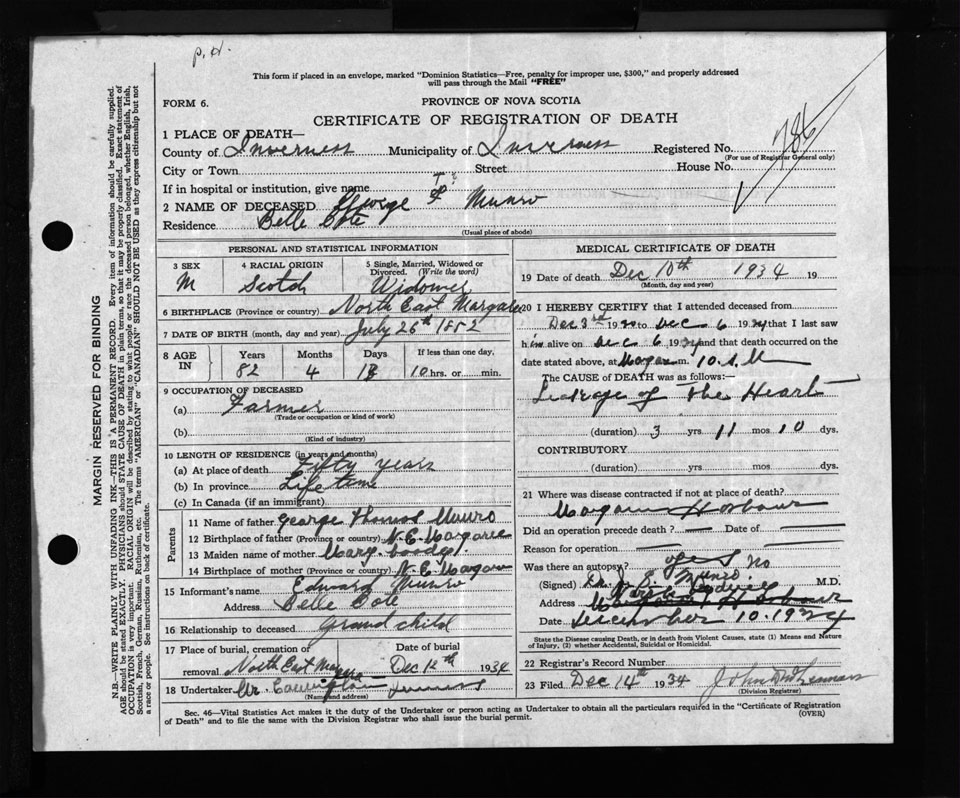 P.H.
This form if placed in an envelope, marked "Dominion Statistics—Free, penalty for improper use, $300," and properly addressed
will pass through the Mail "FREE"
FORM 6.
PROVINCE OF NOVA SCOTIA
CERTIFICATE OF REGISTRATION OF DEATH
1 PLACE OF DEATH—
County of Inverness Municipality of Inverness Registered No. 786
(For use of Registrar General only)
City or Town Street House No.
If in hospital or institution, give name
2 NAME OF DECEASED George T Munro
Residence Belle Cote
(Usual place of abode)
PERSONAL AND STATISTICAL INFORMATION
3 SEX 4 RACIAL ORIGIN 5 Single, Married, Widowed or
Divorced. (Write the word)
M Scotch Widower
6 BIRTHPLACE (Province or country) North East Margaree
7 DATE OF BIRTH (month, day and year) July 26th 1852
8 AGE IN Years Months Days If less than one day,
82 4 13 10 hrs. or min.
9 OCCUPATION OF DECEASED
(a) Farmer
(Trade or occupation or kind of work)
(b)
(Kind of industry)
10 LENGTH OF RESIDENCE (in years and months)
(a) At place of death Fifty years
(b) In province Life time
(c) In Canada (if an immigrant)
Parents
11 Name of father George Thomas Munro
12 Birthplace of father (Province or country) N.E. Margaree
13 Maiden name of mother Mary
14 Birthplace of mother (Province or country) N.E. Margaree
15 Informant's name Edward Munro
Address Belle Cote
16 Relationship to deceased Grand child
17 Place of burial, cremation or removal North East Margaree
Date of burial Dec 12th 1934
18 Undertaker Mr.
(Name and address)
MEDICAL CERTIFICATE OF DEATH
19 Date of death Dec 10th 1934 19
(Month, day and year)
20 I HEREBY CERTIFY that I attended deceased from
Dec 3rd 1934 to Dec 6 1934 that I last saw
him alive on Dec 6 1934 and that death occurred on the
date stated above, at m. 10 A.M
The CAUSE of DEATH was as follows:—
Leakage of The Heart
(duration) 3 yrs 11 mos 10 dys.
CONTRIBUTORY
(duration) yrs mos dys.
21 Where was disease contracted if not at place of death?
Margaree Harbour
Did an operation precede death? — Date of —
Reason for operation —
Was there an autopsy? No
(Signed) Dr. Munro M.D.
Address Margaree Harbour
Date December 10. 1934
State the Disease causing Death, or in death from Violent Causes, state (1) Means and Nature
of Injury, (2) whether Accidental, Suicidal or Homicidal.
22 Registrar's Record Number
23 Filed Dec 14th 1934 John D McLennan
(Division Registrar)
Sec. 46—Vital Statistics Act makes it the duty of the Undertaker or person acting as Undertaker to obtain all the particulars required in the "Certificate of Registration
of Death" and to file the same with the Division Registrar who shall issue the burial permit.
(OVER)
MARGIN RESERVED FOR BINDING
N.B.—WRITE PLAINLY WITH UNFADING INK—THIS IS A PERMANENT RECORD. Every item of information should be carefully supplied.
AGE should be stated EXACTLY. PHYSICIANS should STATE CAUSE OF DEATH in plain terms, so that it may be properly classified. Exact statement of
OCCUPATION is very important. RACIAL ORIGIN will be described by stating to what people or race the deceased person belonged, whether English, Irish,
Scottish, French, German, Russian, Ruthenian, etc. The terms "AMERICAN" or "CANADIAN" SHOULD NOT BE USED as they express citizenship but not
a race or people. See instructions on back of certificate.